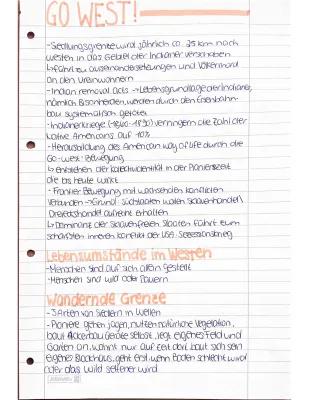 GO WEST!
-Siedlungsgrenze wird jährlich ca. 25 km nach
Westen in das Gebiet der Indianer verschoben
↳führt zu Auseinandersetzungen und Völkermord
an den Ureinwohnern
-Indian removal acts → Lebensgrundlage der Indianer,
nämlich Bisonherden, werden durch den Eisenbahn-
bau systematisch getötet
-Indianerkriege (1840-1890) verringern die Zahl der
Native Americans auf 10%
-Herausbildung des American way of life durch die
Go-west-Bewegung
↳ entstehen der Kollektividentität in der Pionierszeit
die bis heute wirkt
-Frontier Bewegung mit wachsenden Konflikten
verbunden → Grund: Südstaaten wollen Sklavenhandel/
Dreieckshandel aufrecht erhalten
↳ Dominanz der sklavenfreien Staaten führt zum
schärfsten inneren Konflikt der USA: Sezessionskrieg
Lebensumstände im Westen
-Menschen sind auf sich allein gestellt
-Menschen sind wild oder Bauern
Wandernde Grenze
-3 Arten von Siedlern in Wellen
-Pioniere gehen jagen, nutzen natürliche Vegetation,
baut Ackerbau Geräte selbst, legt eigenes Feld und
Garten an, wohnt nur auf Zeit dort, baut sich sein
eigenes Blockhaus, geht erst, wenn Boden schlecht wird
oder das Wild seltener wird